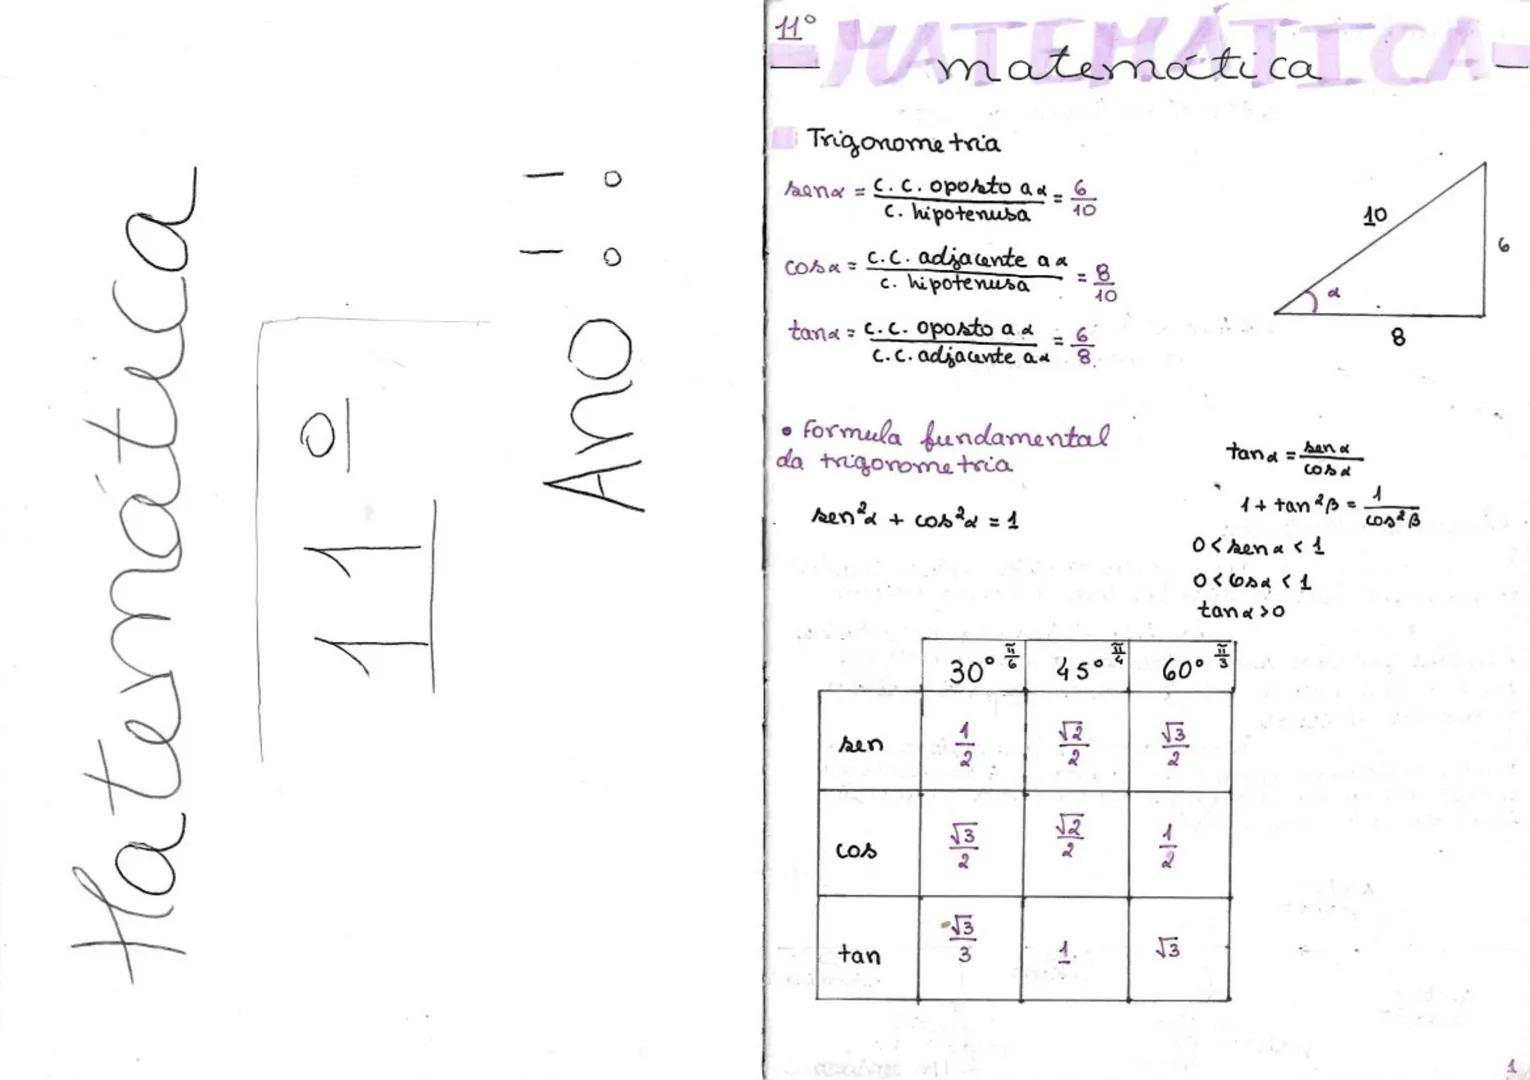 Matemática
11º
Ano::
11º
MATEMÁTICA
matemática
Trigonometria
senα = c.c. oposto a α / c. hipotenusa = 6/10
cosα = c.c. adjacente a α / c. hipotenusa = 8/10
tanα = c.c. oposto a α / c.c. adjacente a α = 6/8
10
6
α
8
• Formula fundamental
da trigonometria
sen²α + cos²α = 1
tanα = senα / cosα
1 + tan²β = 1 / cos²β
0 < senα < 1
0 < cosα < 1
tanα > 0
30° π/6 45° π/4 60° π/3
sen 1/2 √2/2 √3/2
cos √3/2 √2/2 1/2
tan √3/3 1 √3
1